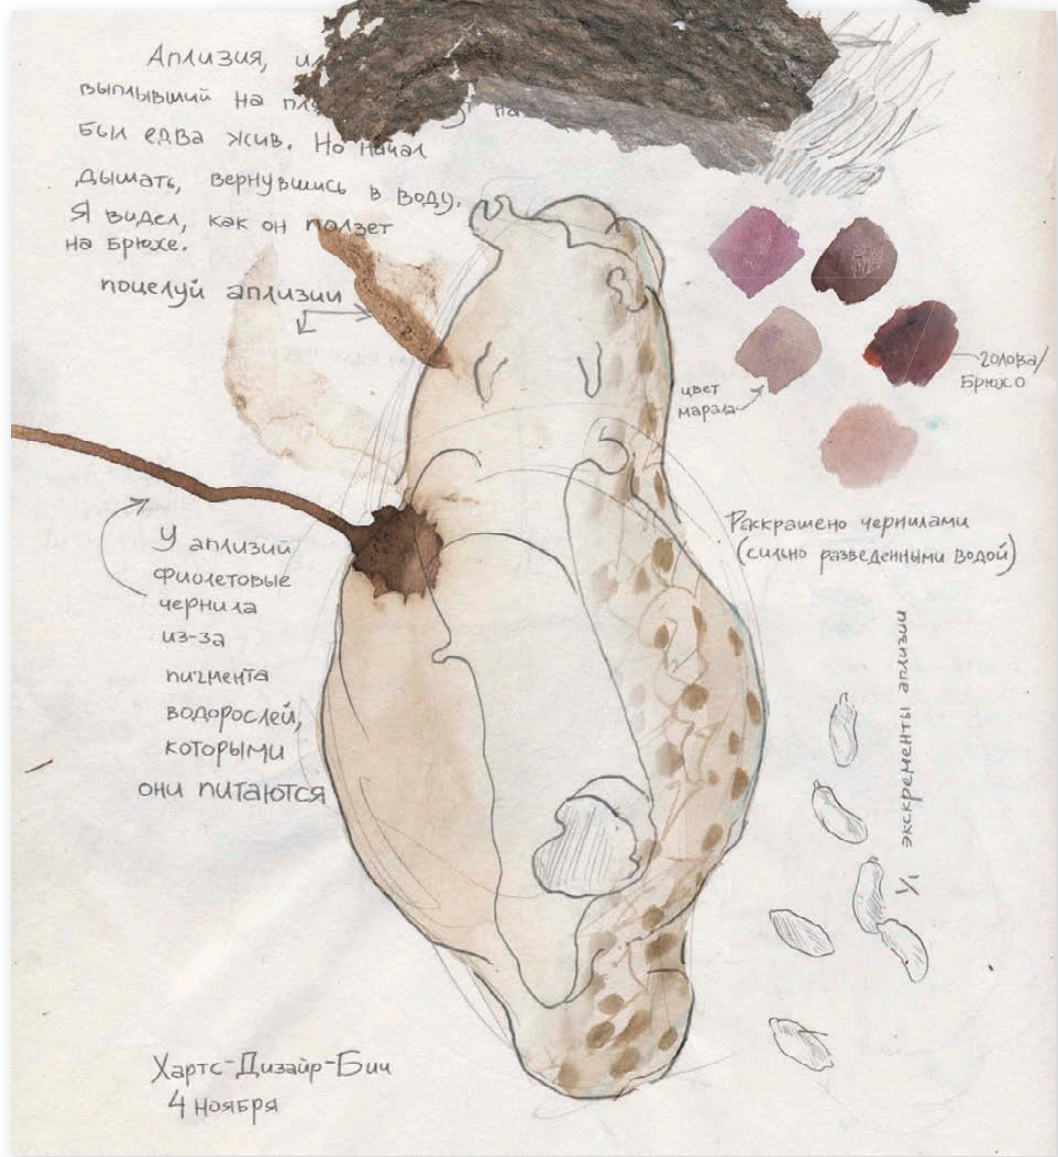 Аплизия,
выплывший на
был едва жив. Но начал
дышать, вернувшись в воду.
Я видел, как он ползет
на брюхе.
поцелуй аплизии
цвет
марала
голова/
брюхо
Раскрашено чернилами
(сильно разведенными водой)
У аплизий
фиолетовые
чернила
из-за
пигмента
водорослей,
которыми
они питаются
1/1 экскременты аплизии
Хартс-Дизайр-Бич
4 ноября